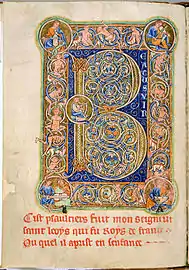 B
EATUSVIR
Cist psaultiers fuit mon seigneur
saint looys qui fu roys de france
Ou quel il aprist en senfance